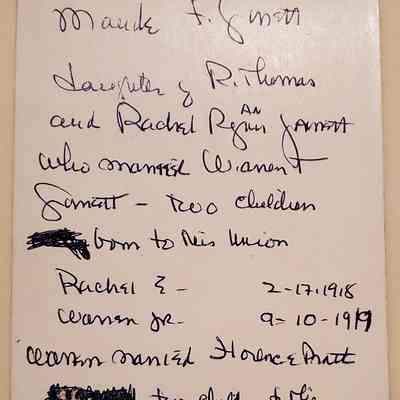 Maude F. Garrett
Daughter of R. Thomas
and Rachel Ryan Garrett
who married Warren T
Garrett - two children
born to this Union
Rachel E - 2-17-1918
Warren Jr. - 9-10-1919
Warren married Florence Pratt
two